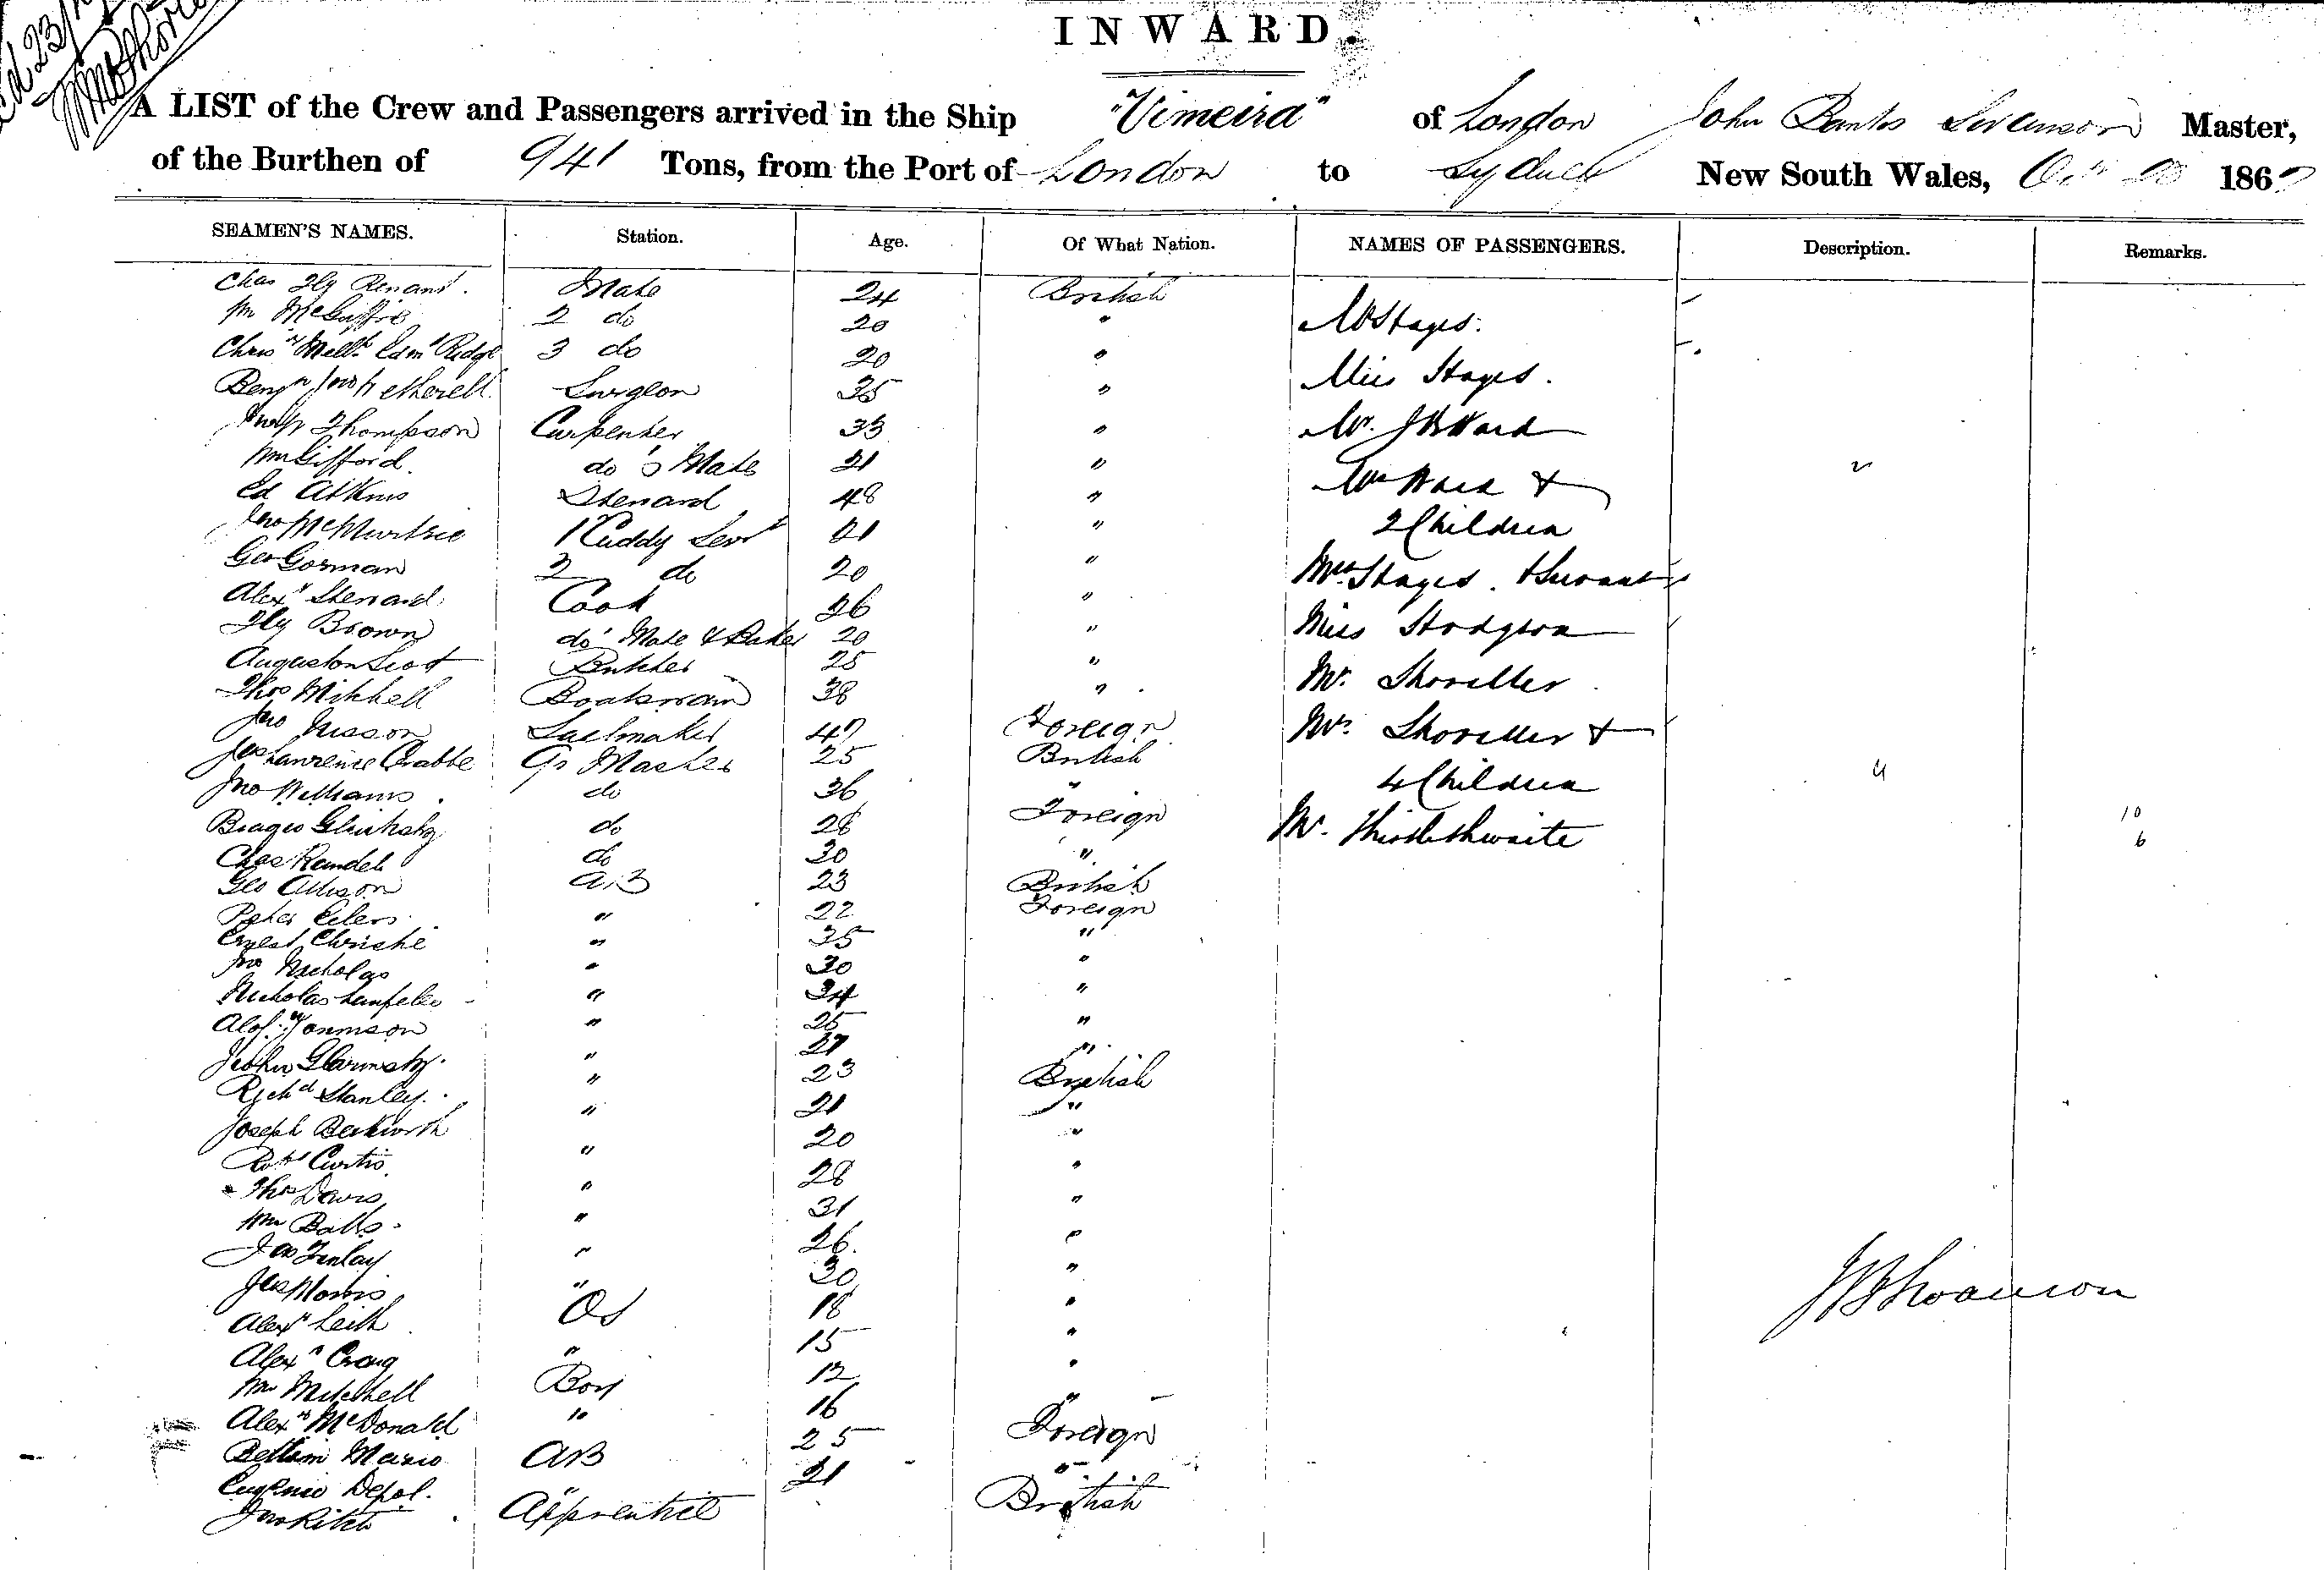 INWARD.
A LIST of the Crew and Passengers arrived in the Ship "Vimeira" of London John Banks Swanson Master,
of the Burthen of 941 Tons, from the Port of London to Sydney New South Wales, 186
SEAMEN'S NAMES. Station. Age. Of What Nation. NAMES OF PASSENGERS. Description. Remarks.
Chas Hy Renant. Mate 24 British
Wm McGuffie 2 do 20 "
3 do 20 " Mr Hayes.
Surgeon 35 " Miss Hayes.
Thompson Carpenter 33 " Mr. J B Ward
Wm Gifford. do's Mate 21 " Mrs Ward &
Ed Atkins Steward 48 " 2 Children
Jno McMurtrie 1 Cuddy Servt 21 "
Geo Gorman 2 do 20 " Mrs Hayes. & Servant
Alexr Sherrard Cook 26 "
Hy Brown do Mate & Baker 20 " Miss Hodgson
Augustou Scott Butcher 25 "
Thos Mitchell Boatswain 38 " Mr. Shoveller
Jno Nisson Sailmaker 47 Foreign Mrs. Shoveller &
Jas Lawrence Crabbe Qr Master 25 British 4 Children
Jno Williams do 36 "
do 28 Foreign Mr. Thistlethwaite 10
Chas Randel do 30 " 6
Geo Allison A.B 23 British
Peter Eilers " 22 Foreign
Ernest Christie " 35 "
Jno Nicholas " 30 "
Nicholas " 24 "
" 25 "
" 27 "
Richd Stanley. " 23 British
Joseph Beckworth " 21 "
Robt Curtis " 20 "
Thos Davis " 28 "
Wm Balls " 31 "
Jas Finlay " 26. "
Jas Morris " 30 "
Alexr Leith OS 18 "
Alexr Craig " 15 "
Wm Mitchell Boy 12 "
Alexr McDonald " 16 "
Bettam Mario AB 25 Foreign
Eugenio Depol. " 21 "
Jno Ritch Apprentice British
J B Swanson